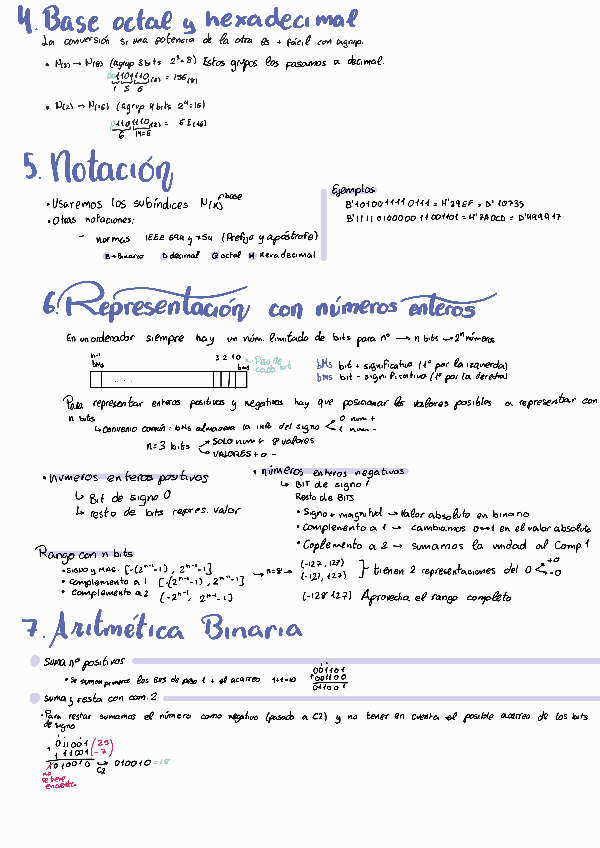 4. Base octal y hexadecimal
La conversión si una potencia de la otra es + fácil con agrup.
• N(2) → N(8) (agrup 3 bits 2³=8) Estos grupos los pasamos a decimal.
001101110(2) = 156(8)
1 5 6
• N(2) → N(16) (agrup 4 bits 2⁴=16)
01101110(2) = 6E(16)
6 14=E
5. Notación
• Usaremos los subíndices N(x) base
• Otras notaciones:
- normas IEEE 694 y 754 (Prefijo y apóstrofe)
B→Binario D decimal Q octal H hexadecimal
Ejemplos
B'10100111110111 = H'29EF = D'10735
B'1111010000011001101 = H'7A0CD = D'499917
6. Representación con números enteros
En un ordenador siempre hay un núm. limitado de bits para nº → n bits → 2ⁿ números
n-1 3 2 1 0 ~ Peso de cada bit
bMs bms
. . .
bMs bit + significativo (1º por la izquierda)
bms bit - significativo (1º por la derecha)
Para representar enteros positivos y negativos hay que posicionar los valores posibles a representar con
n bits
↳ Convenio común: bMs almacena la info del signo 0 num +
1 num -
n=3 bits SOLO num + 8 valores
VALORES + o -
• números enteros positivos
↳ Bit de signo 0
↳ resto de bits repres. valor
• números enteros negativos
↳ BIT de signo 1
Resto de BITS
• Signo + magnitud → Valor absoluto en binario
• Complemento a 1 → cambiamos 0↔1 en el valor absoluto
• Coplemento a 2 → sumamos la unidad al Comp 1
Rango con n bits
• SIGNO y MAG. [-(2ⁿ⁻¹-1), 2ⁿ⁻¹-1]
• Complemento a 1 [-(2ⁿ⁻¹-1), 2ⁿ⁻¹-1]
• Complemento a 2 [-2ⁿ⁻¹, 2ⁿ⁻¹-1]
→ n=8 → (-127, 127)
(-127, 127)
] tienen 2 representaciones del 0 +0
-0
(-128 127) Aprovecha el rango completo
7. Aritmética Binaria
suma nº positivos
• Se suman primeros los bits de peso 1 + el acarreo 1+1=10
001101
+001100
011001
suma y resta con com. 2
• Para restar sumamos el número como negativo (pasado a C2) y no tener en cuenta el posible acarreo de los bits
de signo
011001 (25)
+ 111001 (-7)
1010010 → 010010 = 18
C2
no
se tiene
en cuenta